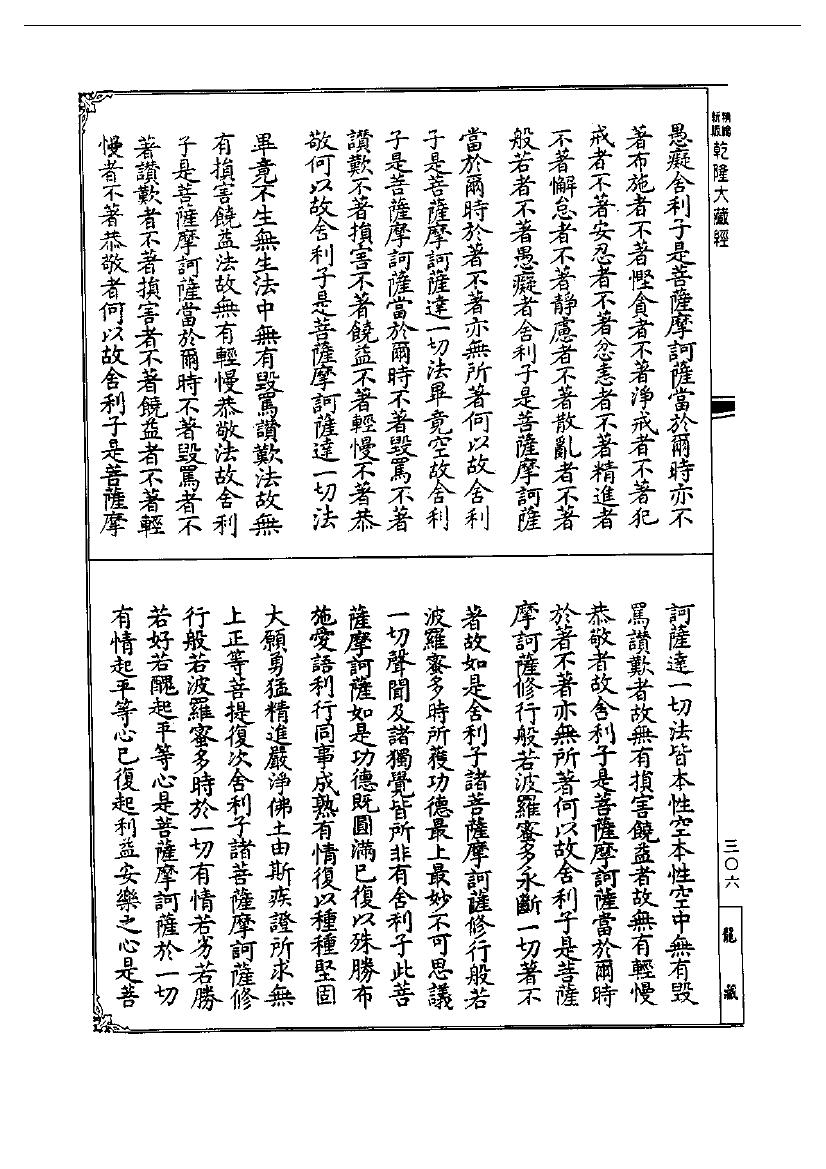 精縮新版乾隆大藏經
愚癡舍利子是菩薩摩訶薩當於爾時亦不
著布施者不著慳貪者不著淨戒者不著犯
戒者不著安忍者不著忿恚者不著精進者
不著懈怠者不著靜慮者不著散亂者不著
般若者不著愚癡者舍利子是菩薩摩訶薩
當於爾時於著不著亦無所著何以故舍利
子是菩薩摩訶薩達一切法畢竟空故舍利
子是菩薩摩訶薩當於爾時不著毀罵不著
讚歎不著損害不著饒益不著輕慢不著恭
敬何以故舍利子是菩薩摩訶薩達一切法
畢竟不生無生法中無有毀罵讚歎法故無
有損害饒益法故無有輕慢恭敬法故舍利
子是菩薩摩訶薩當於爾時不著毀罵者不
著讚歎者不著損害者不著饒益者不著輕
慢者不著恭敬者何以故舍利子是菩薩摩
訶薩達一切法皆本性空本性空中無有毀
罵讚歎者故無有損害饒益者故無有輕慢
恭敬者故舍利子是菩薩摩訶薩當於爾時
於著不著亦無所著何以故舍利子是菩薩
摩訶薩修行般若波羅蜜多永斷一切著不
著故如是舍利子諸菩薩摩訶薩修行般若
波羅蜜多時所獲功德最上最妙不可思議
一切聲聞及諸獨覺皆所非有舍利子此菩
薩摩訶薩如是功德既圓滿已復以殊勝布
施愛語利行同事成熟有情復以種種堅固
大願勇猛精進嚴淨佛土由斯疾證所求無
上正等菩提復次舍利子諸菩薩摩訶薩修
行般若波羅蜜多時於一切有情若劣若勝
若好若醜起平等心是菩薩摩訶薩於一切
有情起平等心已復起利益安樂之心是菩
三〇六
龍藏